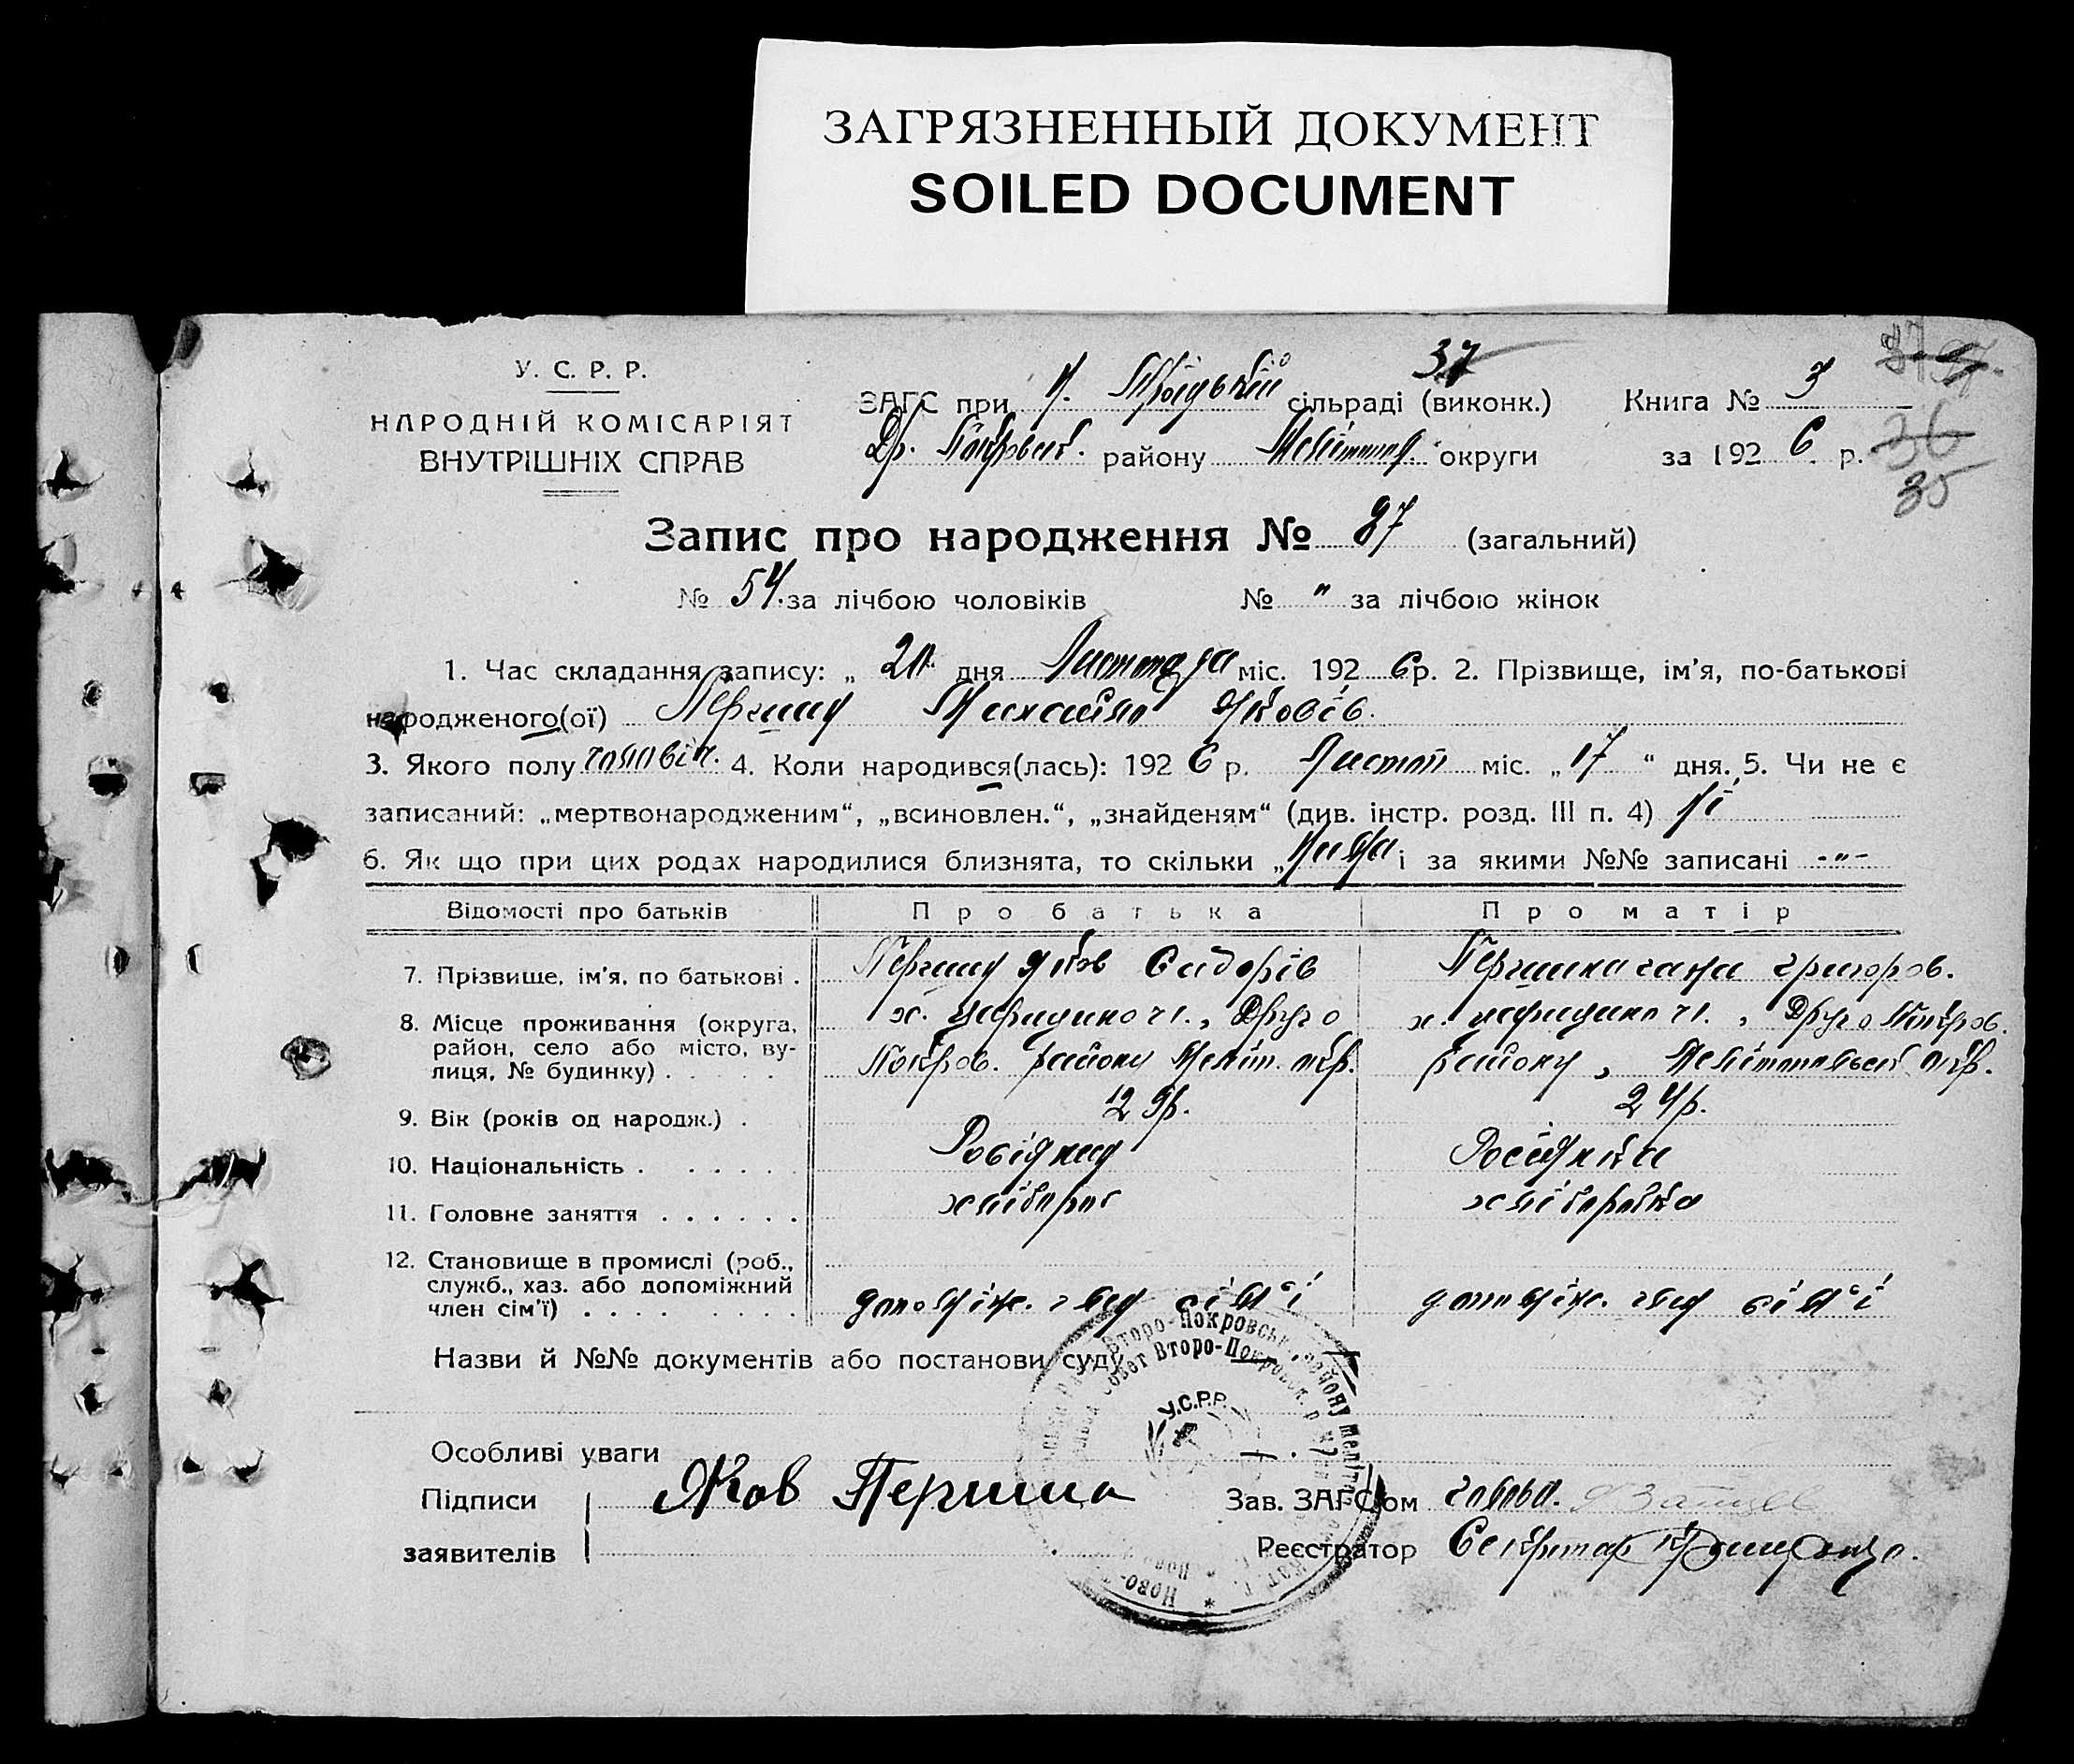 ЗАГРЯЗНЕННЫЙ ДОКУМЕНТ
SOILED DOCUMENT
У. С. Р. Р.
НАРОДНІЙ КОМІСАРІЯТ
ВНУТРІШНІХ СПРАВ
37
ЗАГС при Н. Троїцькій сільраді (виконк.)
Др. Покровськ. району Меліт. округи
Книга № 3
за 1926 р.
36
35
Запис про народження № 87 (загальний)
№ 54. за лічбою чоловіків № " за лічбою жінок
1. Час складання запису: „ 20 дня Листопада міс. 1926 р. 2. Прізвище, ім'я, по-батькові
народженого(ої) Першин Михайло Яковів.
3. Якого полу чоловіч. 4. Коли народився(лась): 1926 р. Листоп міс. „17“ дня. 5. Чи не є
записаний: „мертвонародженим“, „всиновлен.“, „знайденям“ (див. інстр. розд. III п. 4) Ні
6. Як що при цих родах народилися близнята, то скільки „ і за якими №№ записані -"-
Відомості про батьків Про батька Про матір
7. Прізвище, ім'я, по батькові . Першин Яков Сидорів Першина Григоров.
8. Місце проживання (округа, район, село або місто, вулиця, № будинку) . х. Друго
Покров. району Меліт. окр.
х. Друго Покров.
району, Мелітопольськ окр.
9. Вік (років од народж.) . 29р. 24р.
10. Національність . Росіянин Росіянка
11. Головне заняття . хлібороб хліборобка
12. Становище в промислі (роб., служб., хаз. або допоміжний член сім'ї) . допоміж. член сім'ї допоміж. член сім'ї
Назви й №№ документів або постанови суду
Второ-Покровськ. району Меліт
Второ-Покровск.
У.С.Р.Р.
Особливі уваги
Підписи заявителів Яков Першин
Зав. ЗАГС'ом голова.
Реєстратор Секретар